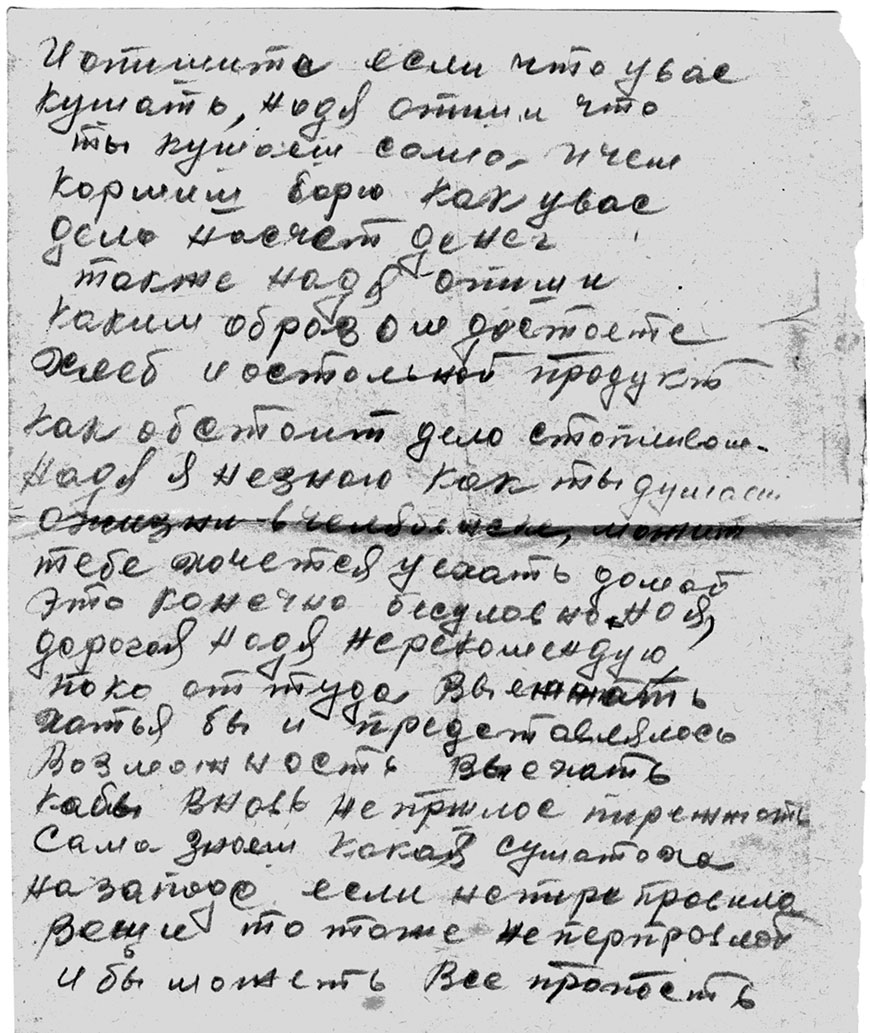 И опишите если что увас
кушать, Надя опиши что
ты кушаеш сама, и чем
кормиш борю как увас
дело насчет денег
также надя опиши
каким образом достаете
хлеб и остальной продукт
как обстоит дело стопливом.
Надя я незнаю как ты думаеш
ожизни в челябинске, можит
тебе хочется уехать домой
Это конечно безусловно. но я,
дорогая Надя нерекомендую,
пока оттуда Выежжать
хатья бы и представлялось
Возможность Выехать
кабы вновь непришлос пирежжать
Сама знаеш какая суматоха
на западе если
Вещи то тоже
и бы можеть Все пропасть